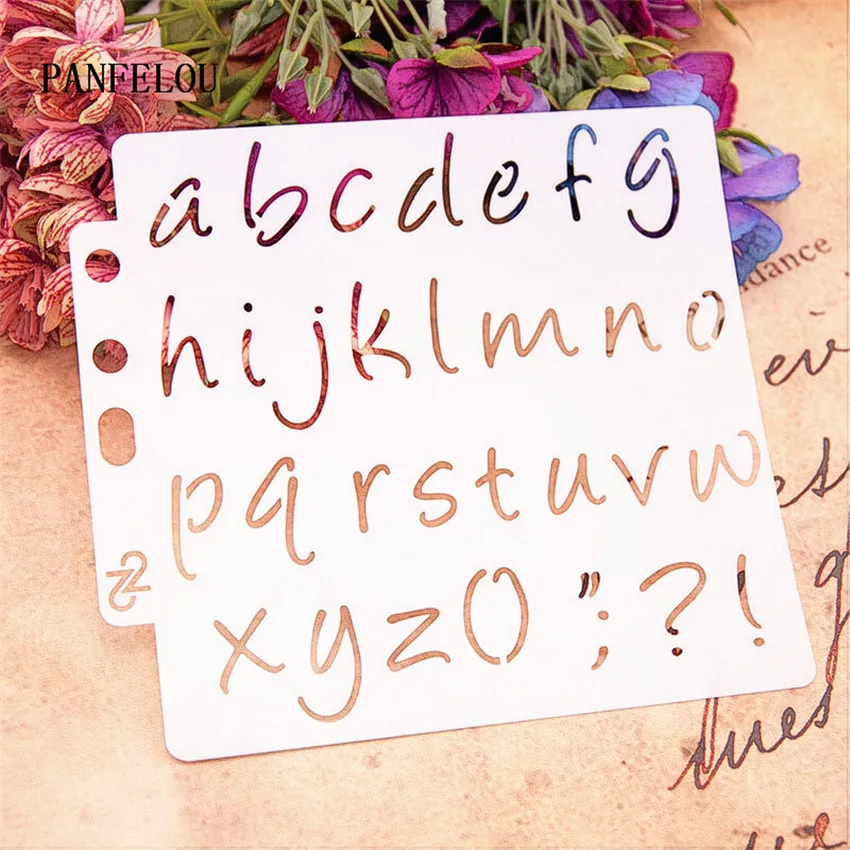 PANFELOU
abcdefg
hijklmno
pqrstuvw
xyz()";?!
dance